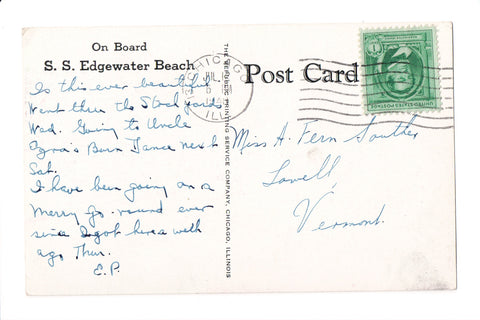 On Board
S. S. Edgewater Beach
Is this ever beautiful
Went thru the Stock yards
Wed. Going to Uncle
Ezra's Barn Dance next
Sat.
I have been going on a
merry go-round ever
since I got here a week
ago Thur.
E.P.
THE VERIQUIK PRINTING SERVICE COMPANY, CHICAGO, ILLINOIS
CHICAGO
JUL
ILL
Post Card
1
UNITED STATES POSTAGE
Miss A. Fern Souther
Lowell
Vermont.